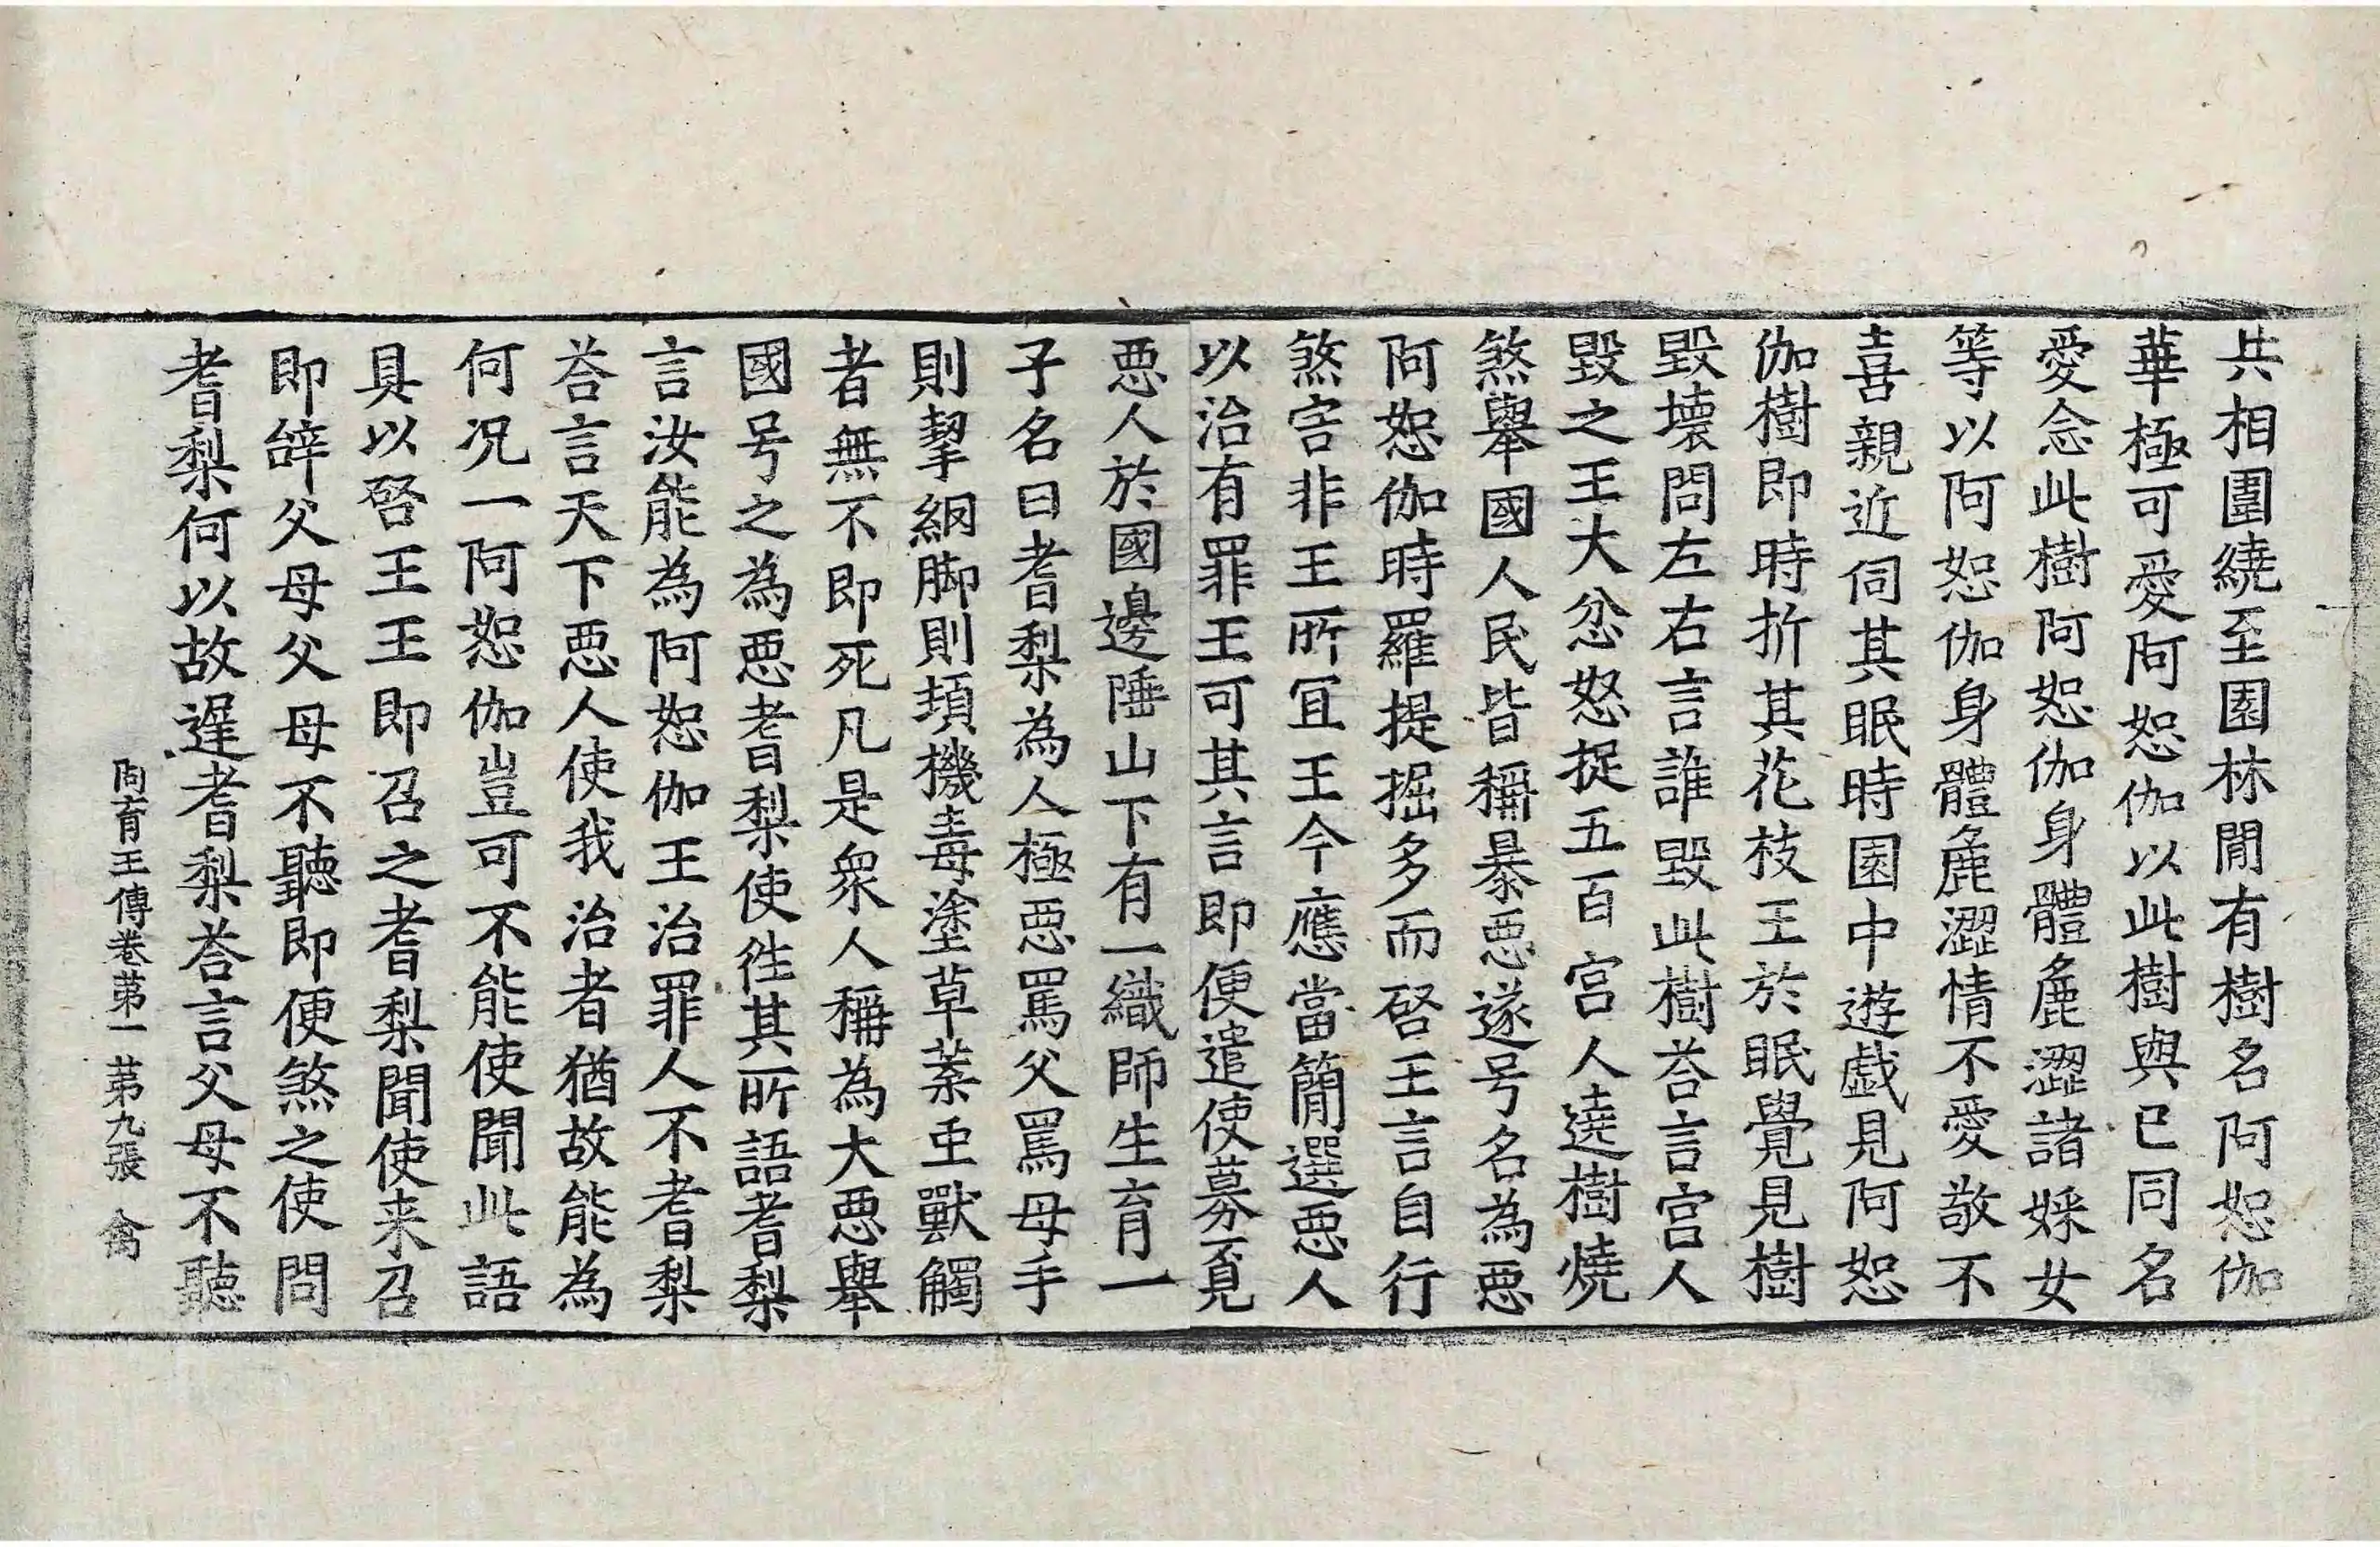 共相圍繞至園林閒有樹名阿恕伽
華極可愛阿恕伽以此樹與已同名
愛念此樹阿恕伽身體麁澀諸婇女
等以阿恕伽身體麁澀情不愛敬不
喜親近伺其眠時園中遊戲見阿恕
伽樹即時折其花枝王於眠覺見樹
毀壞問左右言誰毀此樹荅言宮人
毀之王大忿怒捉五百宮人遶樹燒
煞舉國人民皆稱暴惡遂号名為惡
阿恕伽時羅提掘多而啓王言自行
煞害非王所冝王今應當簡選惡人
以治有罪王可其言即便遣使募覓
惡人於國邊陲山下有一織師生育一
子名曰耆梨為人極惡罵父罵母手
則挐網脚則頍機毒塗草葉虫獸觸
者無不即死凡是衆人稱為大惡舉
國号之為惡耆梨使徃其所語耆梨
言汝能為阿恕伽王治罪人不耆梨
荅言天下惡人使我治者猶故能為
何况一阿恕伽豈可不能使聞此語
具以啓王王即召之耆梨聞使来召
即辝父母父母不聽即便煞之使問
耆梨何以故遲耆梨荅言父母不聽
阿育王傳卷苐一 苐九張 禽